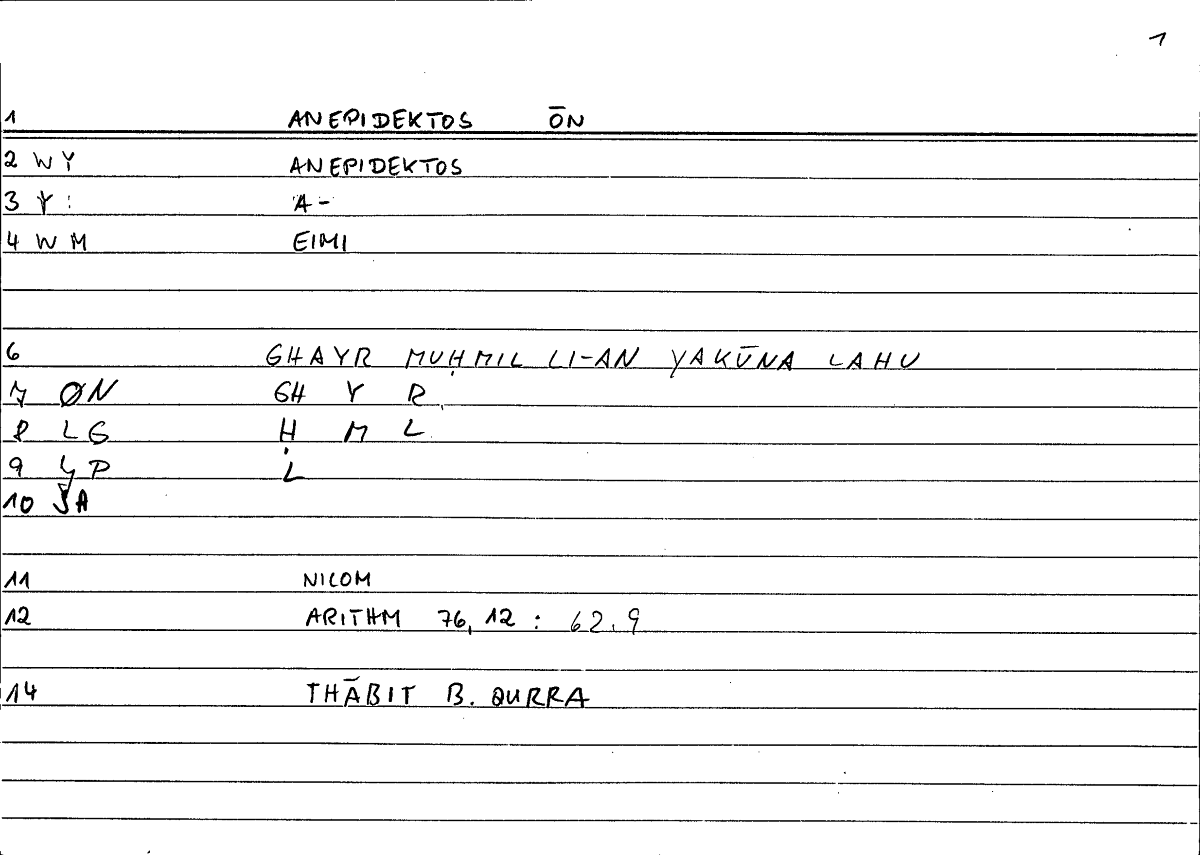 1
1 ANEPIDEKTOS ŌN
2 WY ANEPIDEKTOS
3 Y: A-
4 WM EIMI
6 GHAYR MUḤMIL LI-AN YAKŪNA LAHU
7 ØN GH Y R
8 LG Ḥ M L
9 YP L
10 JA
11 NICOM
12 ARITHM 76,12 : 62.9
14 THĀBIT B. QURRA